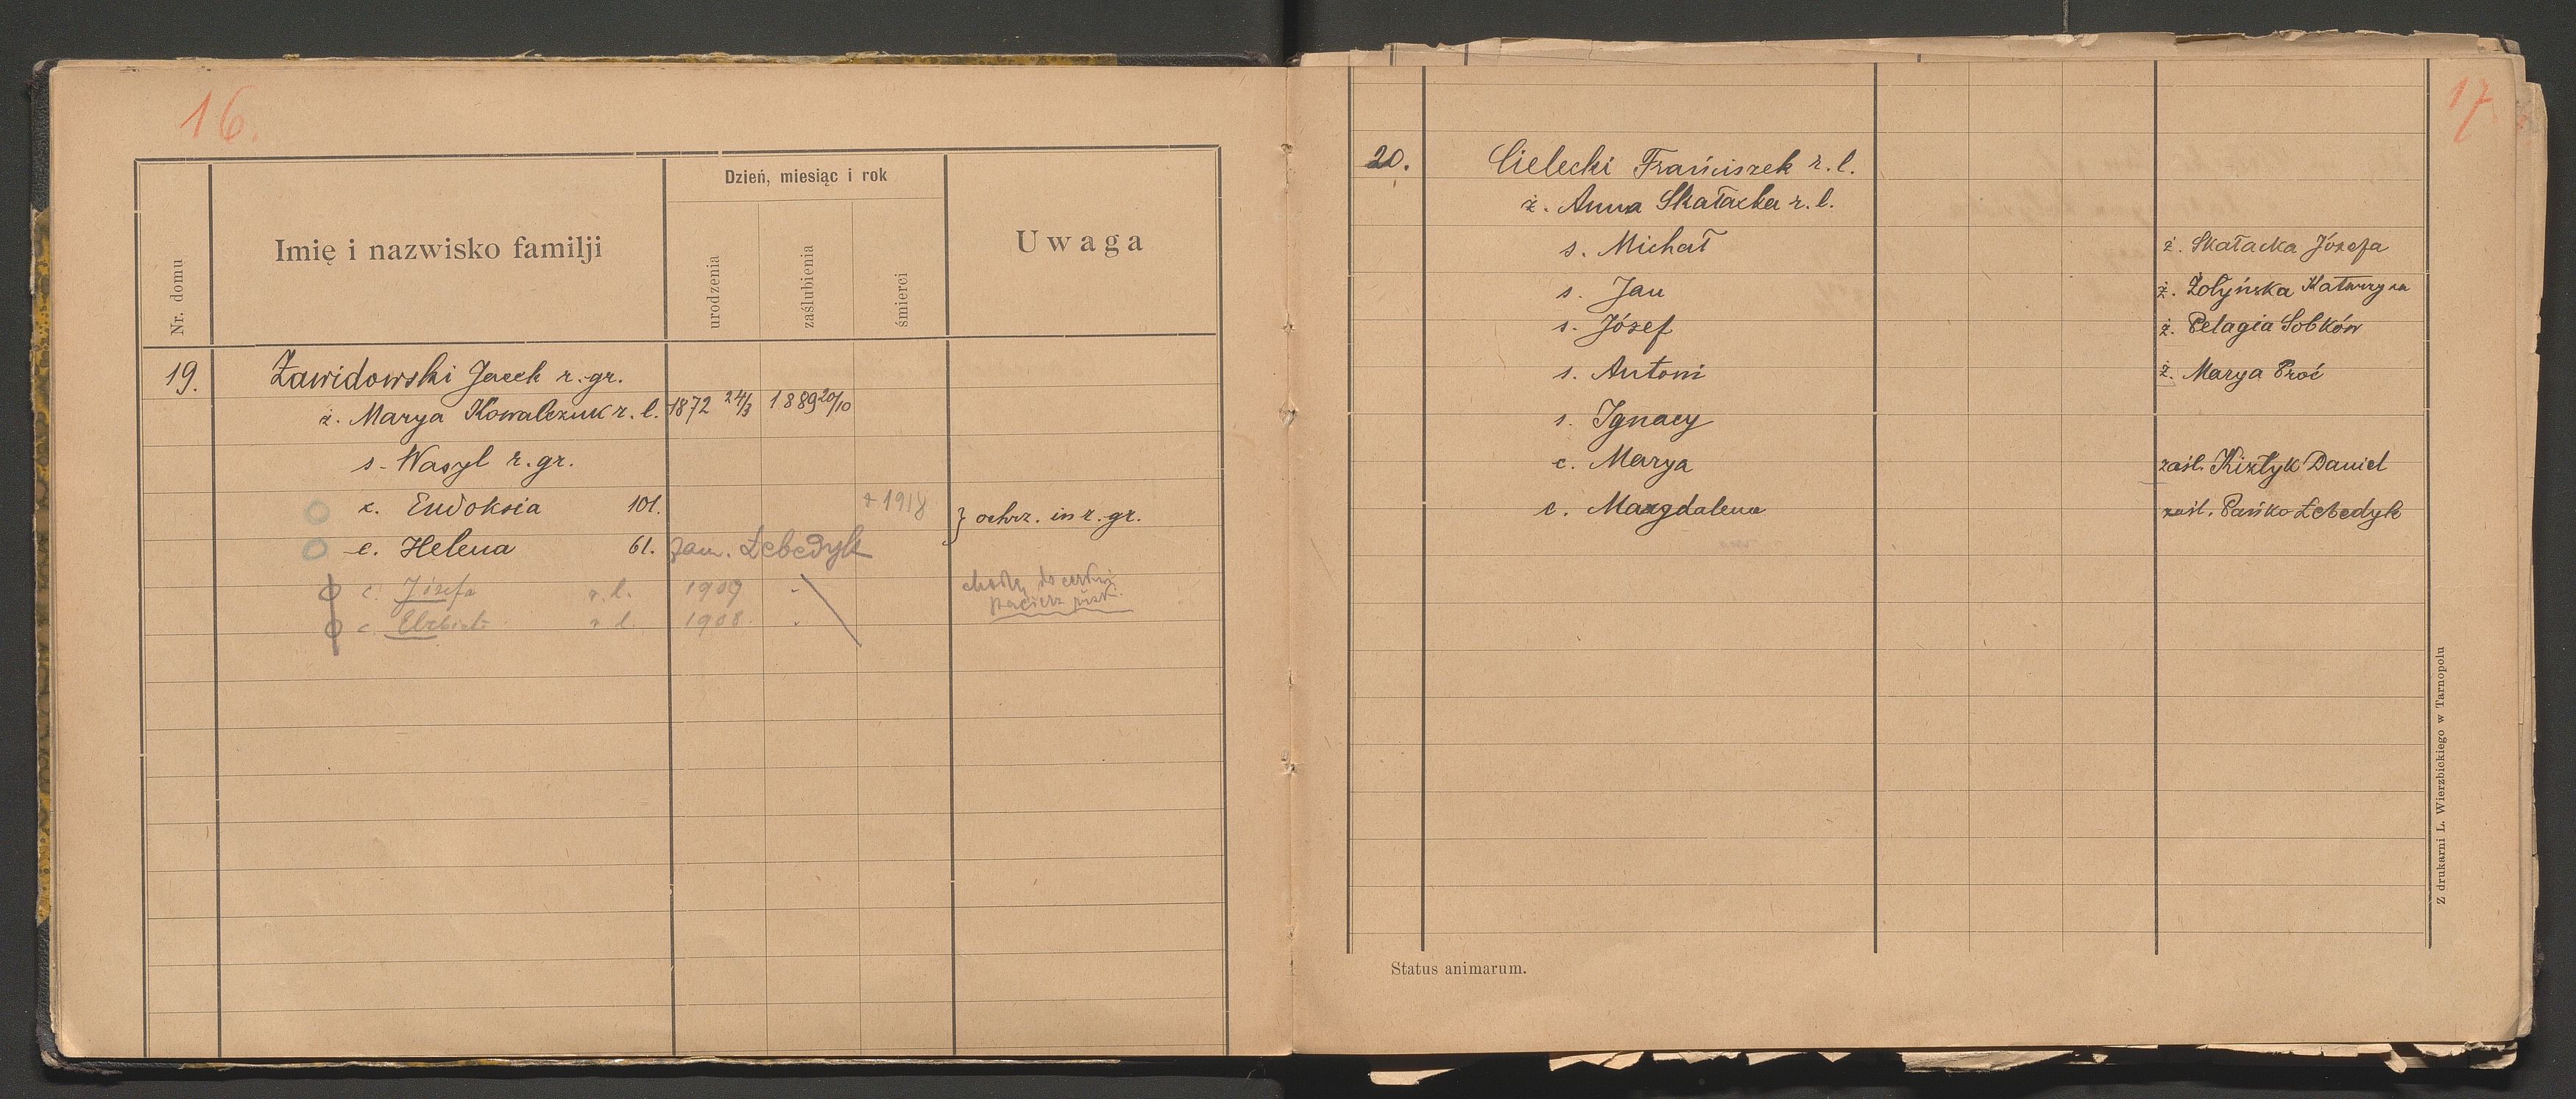 16.
Nr. domu
Imię i nazwisko familji
Dzień, miesiąc i rok
urodzenia
zaślubienia
śmierci
Uwaga
19. Zawidowski Jacek r. gr.
ż. Marya Kowalczuk r. l. 1872 24/3 1889 20/10
s. Wasyl r. gr.
c. Eudoksia 10l. + 1918 } ochrz. in r. gr.
c. Helena 6l. zam. Łebedyk
c. Józefa r. l. 1909 chodzą do cerkwi
c. Elżbieta r. l. 1908 pacierz
17
20. Cielecki Franciszek r. l.
ż. Anna Skałacka r. l.
s. Michał ż. Skałacka Józefa
s. Jan ż. Żołyńska Katarzyna
s. Józef ż. Pelagia Sobków
s. Antoni ż. Marya Proć
s. Ignacy
c. Marya zaśl. Kiztyk Daniel
c. Magdalena zaśl. Pańko Łebedyk
Status animarum.
Z drukarni L. Wierzbickiego w Tarnopolu